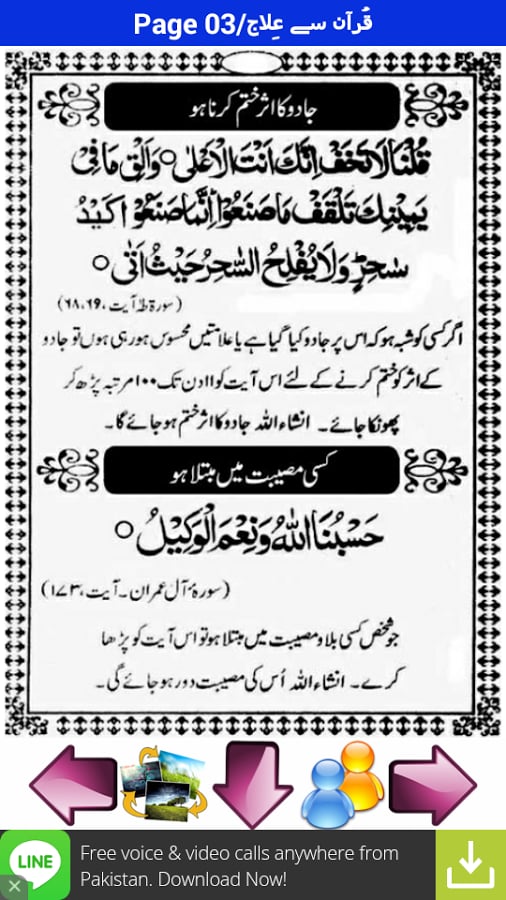 Page 03/قُرآن سے عِلاج
جادو کا اثر ختم کرنا ہو
قُلْنَا لَا تَخَفْ اِنَّكَ اَنْتَ الْاَعْلٰى ○ وَاَلْقِ مَا فِیْ
یَمِیْنِكَ تَلْقَفْ مَا صَنَعُوْا اِنَّمَا صَنَعُوْا كَیْدُ
سٰحِرٍ وَلَا یُفْلِحُ السّٰحِرُ حَیْثُ اَتٰى ○
(سورۃ طٰہٰ آیت ،۶۸،۶۹)
اگر کسی کو شبہ ہو کہ اس پر جادو کیا گیا ہے یا علامتیں محسوس ہو رہی ہوں تو جادو
کے اثر کو ختم کرنے کے لئے اس آیت کو ۱۱ دن تک ۱۰۰ مرتبہ پڑھ کر
پھونکا جائے۔ انشاء اللہ جادو کا اثر ختم ہو جائے گا۔
کسی مصیبت میں مبتلا ہو
حَسْبُنَا اللّٰهُ وَنِعْمَ الْوَكِیْلُ ○
(سورۂ آل عمران۔ آیت، ۱۷۳)
جو شخص کسی بلا و مصیبت میں مبتلا ہو تو اس آیت کو پڑھا
کرے۔ انشاء اللہ اُس کی مصیبت دور ہو جائے گی۔
LINE
Free voice & video calls anywhere from
Pakistan. Download Now!